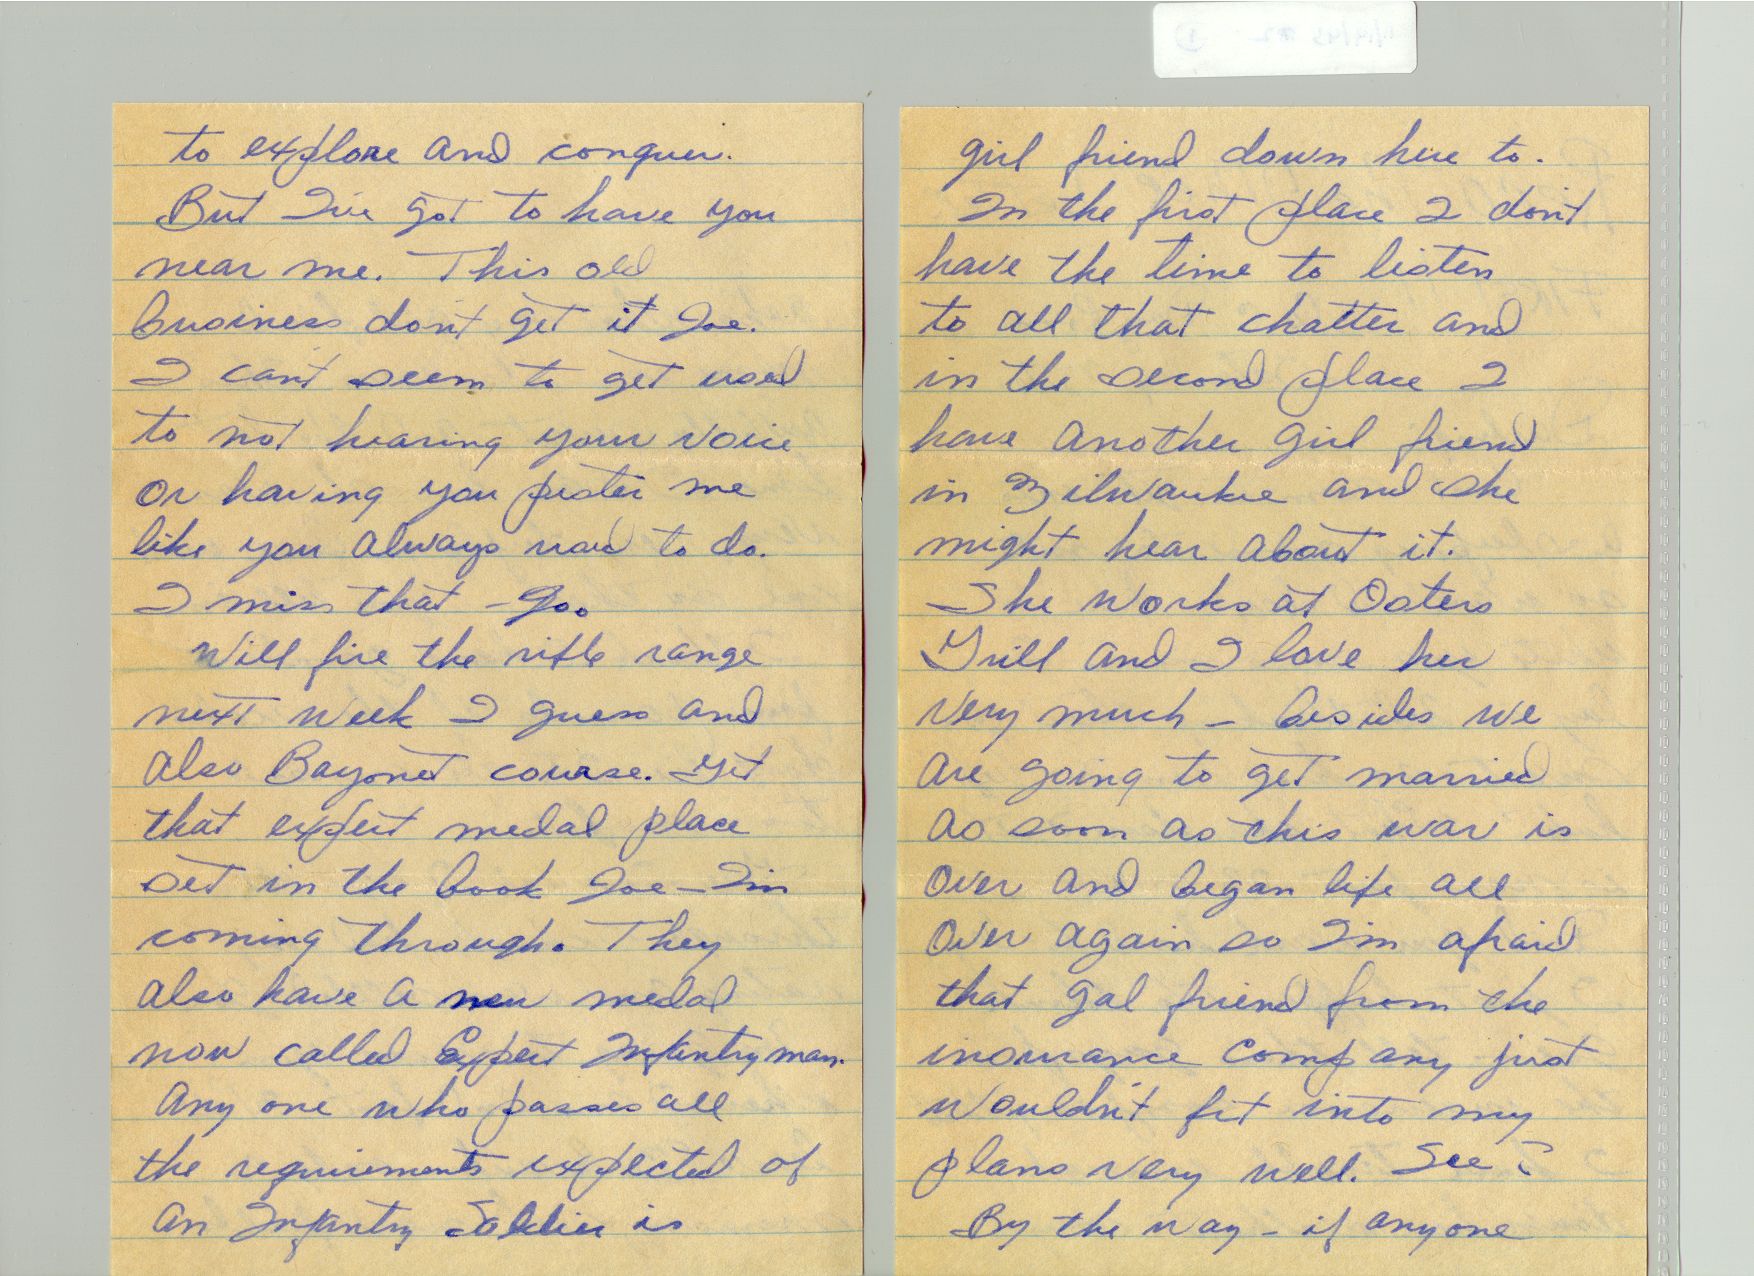 to explore and conquer.
But I've got to have you
near me. This old
business don't get it Joe.
I can't seem to get used
to not hearing your voice
or having you pester me
like you always used to do.
I miss that - Jo.
Will fire the rifle range
next week I guess and
also Bayonet course. Get
that expert medal place
set in the book Joe - I'm
coming through. They
also have a new medal
now called Expert Infantry man.
Any one who passes all
the requirements expected of
an Infantry Soldier is
girl friend down here to.
In the first place I don't
have the time to listen
to all that chatter and
in the second place I
have another girl friend
in Milwaukie and she
might hear about it.
She works at Osters
Grill and I love her
very much - besides we
are going to get married
as soon as this war is
over and began life all
over again so I'm afraid
that gal friend from the
insurance company just
wouldn't fit into my
plans very well. See?
By the way - if anyone